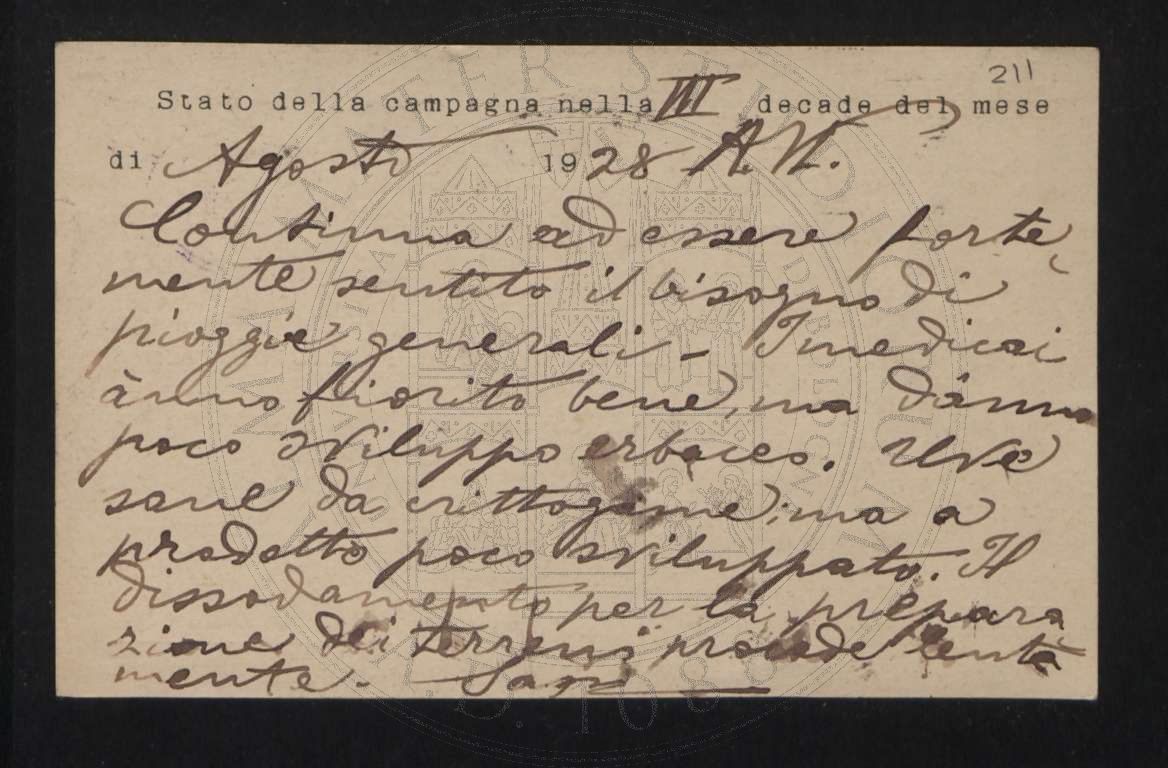 211
Stato della campagna nella III decade del mese
di Agosto 1928 A. VI.
Continua ad essere forte
mente sentito il bisogno di
pioggie generali - I medicai
ànno fiorito bene, ma dànno
poco sviluppo erbaceo. Uve
sane da crittogame; ma a
prodotto poco sviluppato. Il
dissodamento per la prepara
zione dei terreni procede lenta
mente.
ALMA MATER STUDIORUM
A.D. 1088